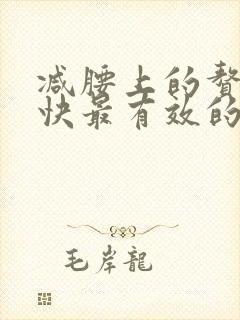 减腰上的赘
快最有效的
毛岸龍